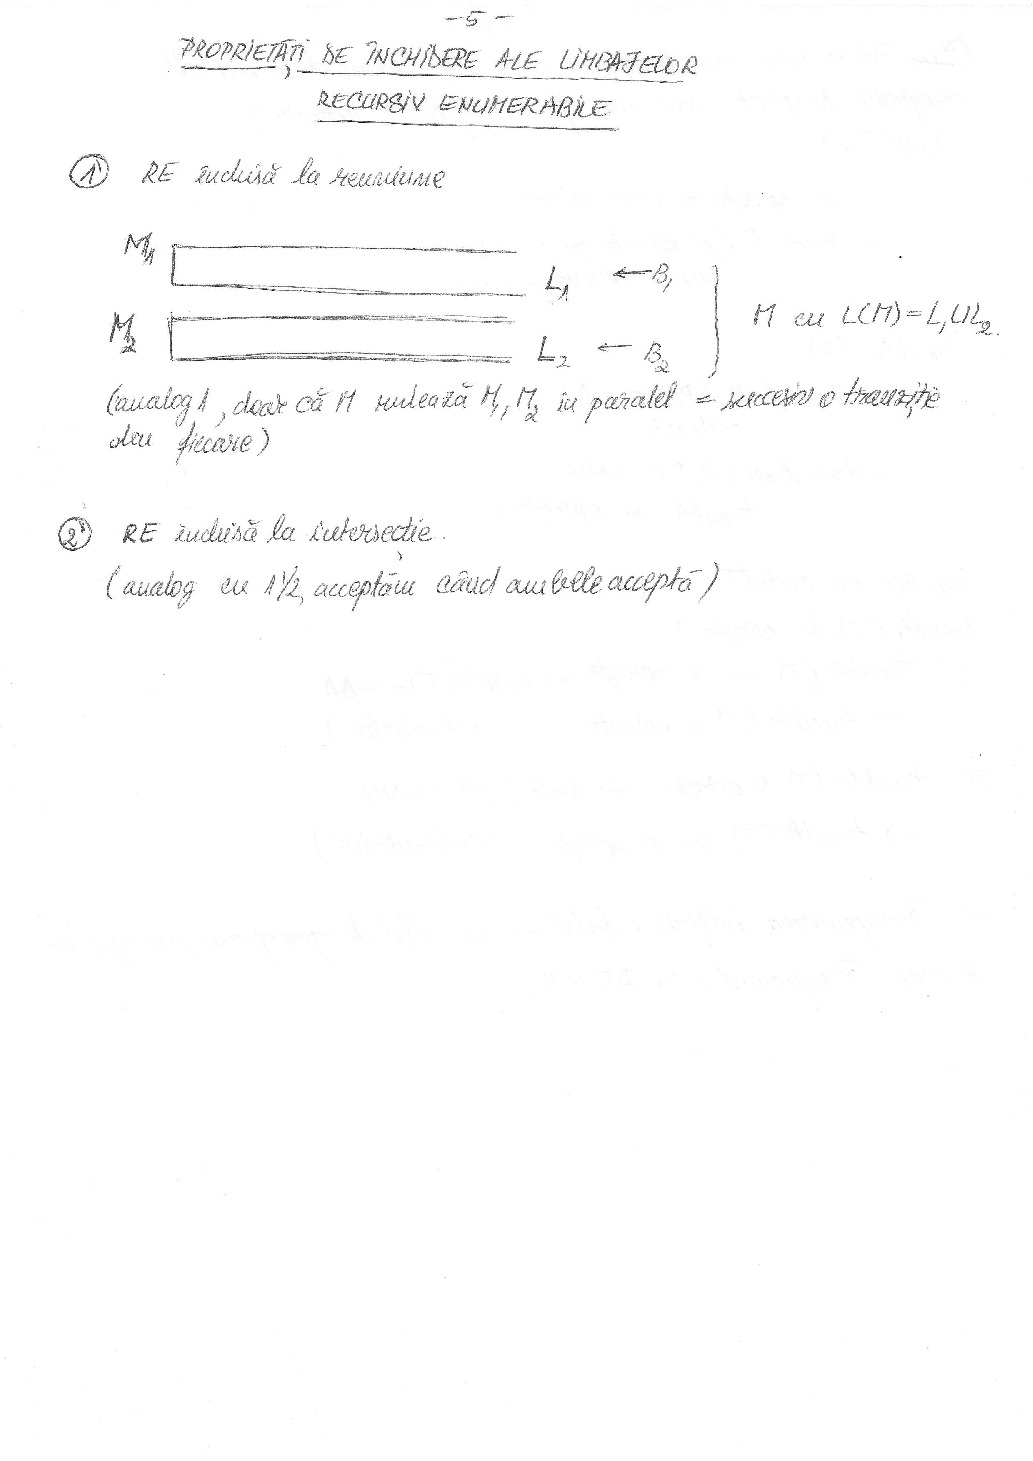 -5-
PROPRIETĂȚI DE ÎNCHIDERE ALE LIMBAJELOR
RECURSIV ENUMERABILE
1' RE închisă la reuniune
M1
L1 ← B1
M2
L2 ← B2
M cu L(M)=L1UL2.
(analog 1, doar că M rulează M1, M2 în paralel = succesiv o tranziție
din fiecare)
2' RE închisă la intersecție.
(analog cu 1'/2, acceptăm când ambele acceptă)